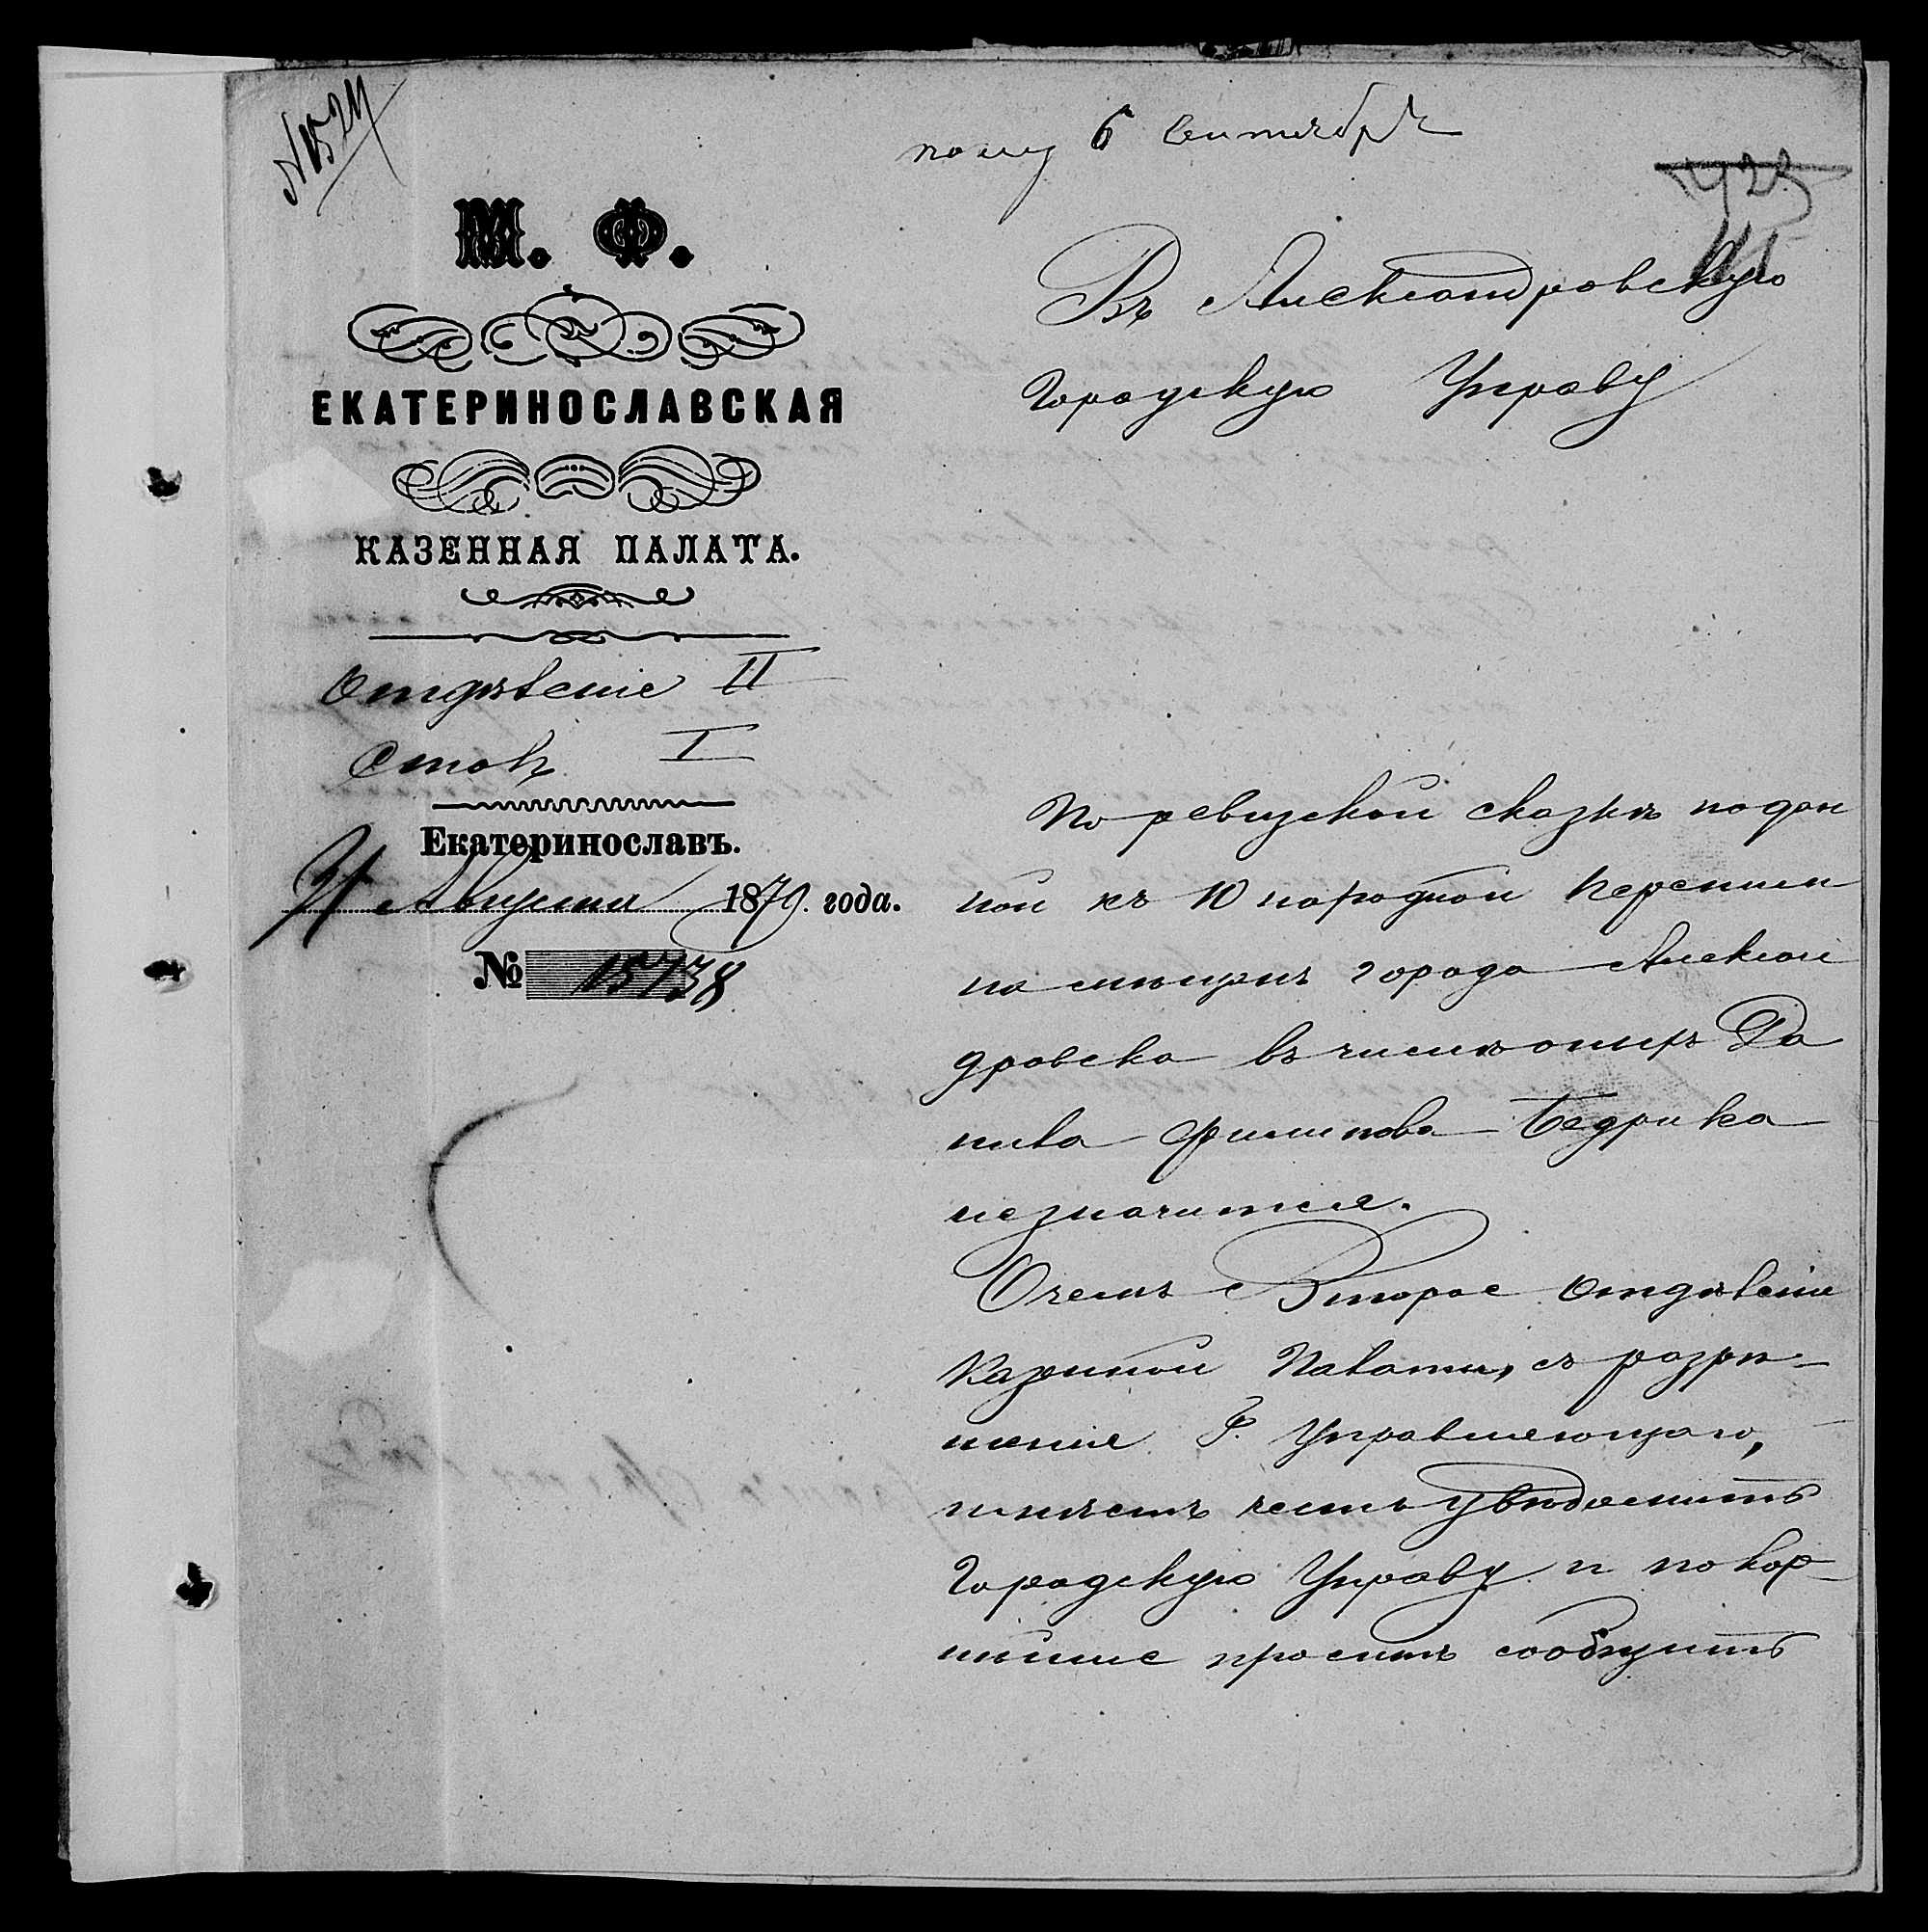 № 1524
полу 6 Сентября
М. Ф.
ЕКАТЕРИНОСЛАВСКАЯ
КАЗЕННАЯ ПАЛАТА.
Отдѣленіе II
Столъ I
Екатеринославъ.
31 Августа 1879. года.
№ 15738
Въ Александровскую
Городскую Управу
По ревизской сказкѣ подан
ной къ 10 народной переписи
на мѣщанъ города Алексан
дровска въ числѣ онихъ Да
нила Филипова Бедрика
незначится.
О чемъ Второе Отдѣленіе
Казенной Палаты, съ разрѣ-
шенія Г. Управляющаго,
имѣетъ честь увѣдомить
Городскую Управу и покор-
нѣйше проситъ сообщить